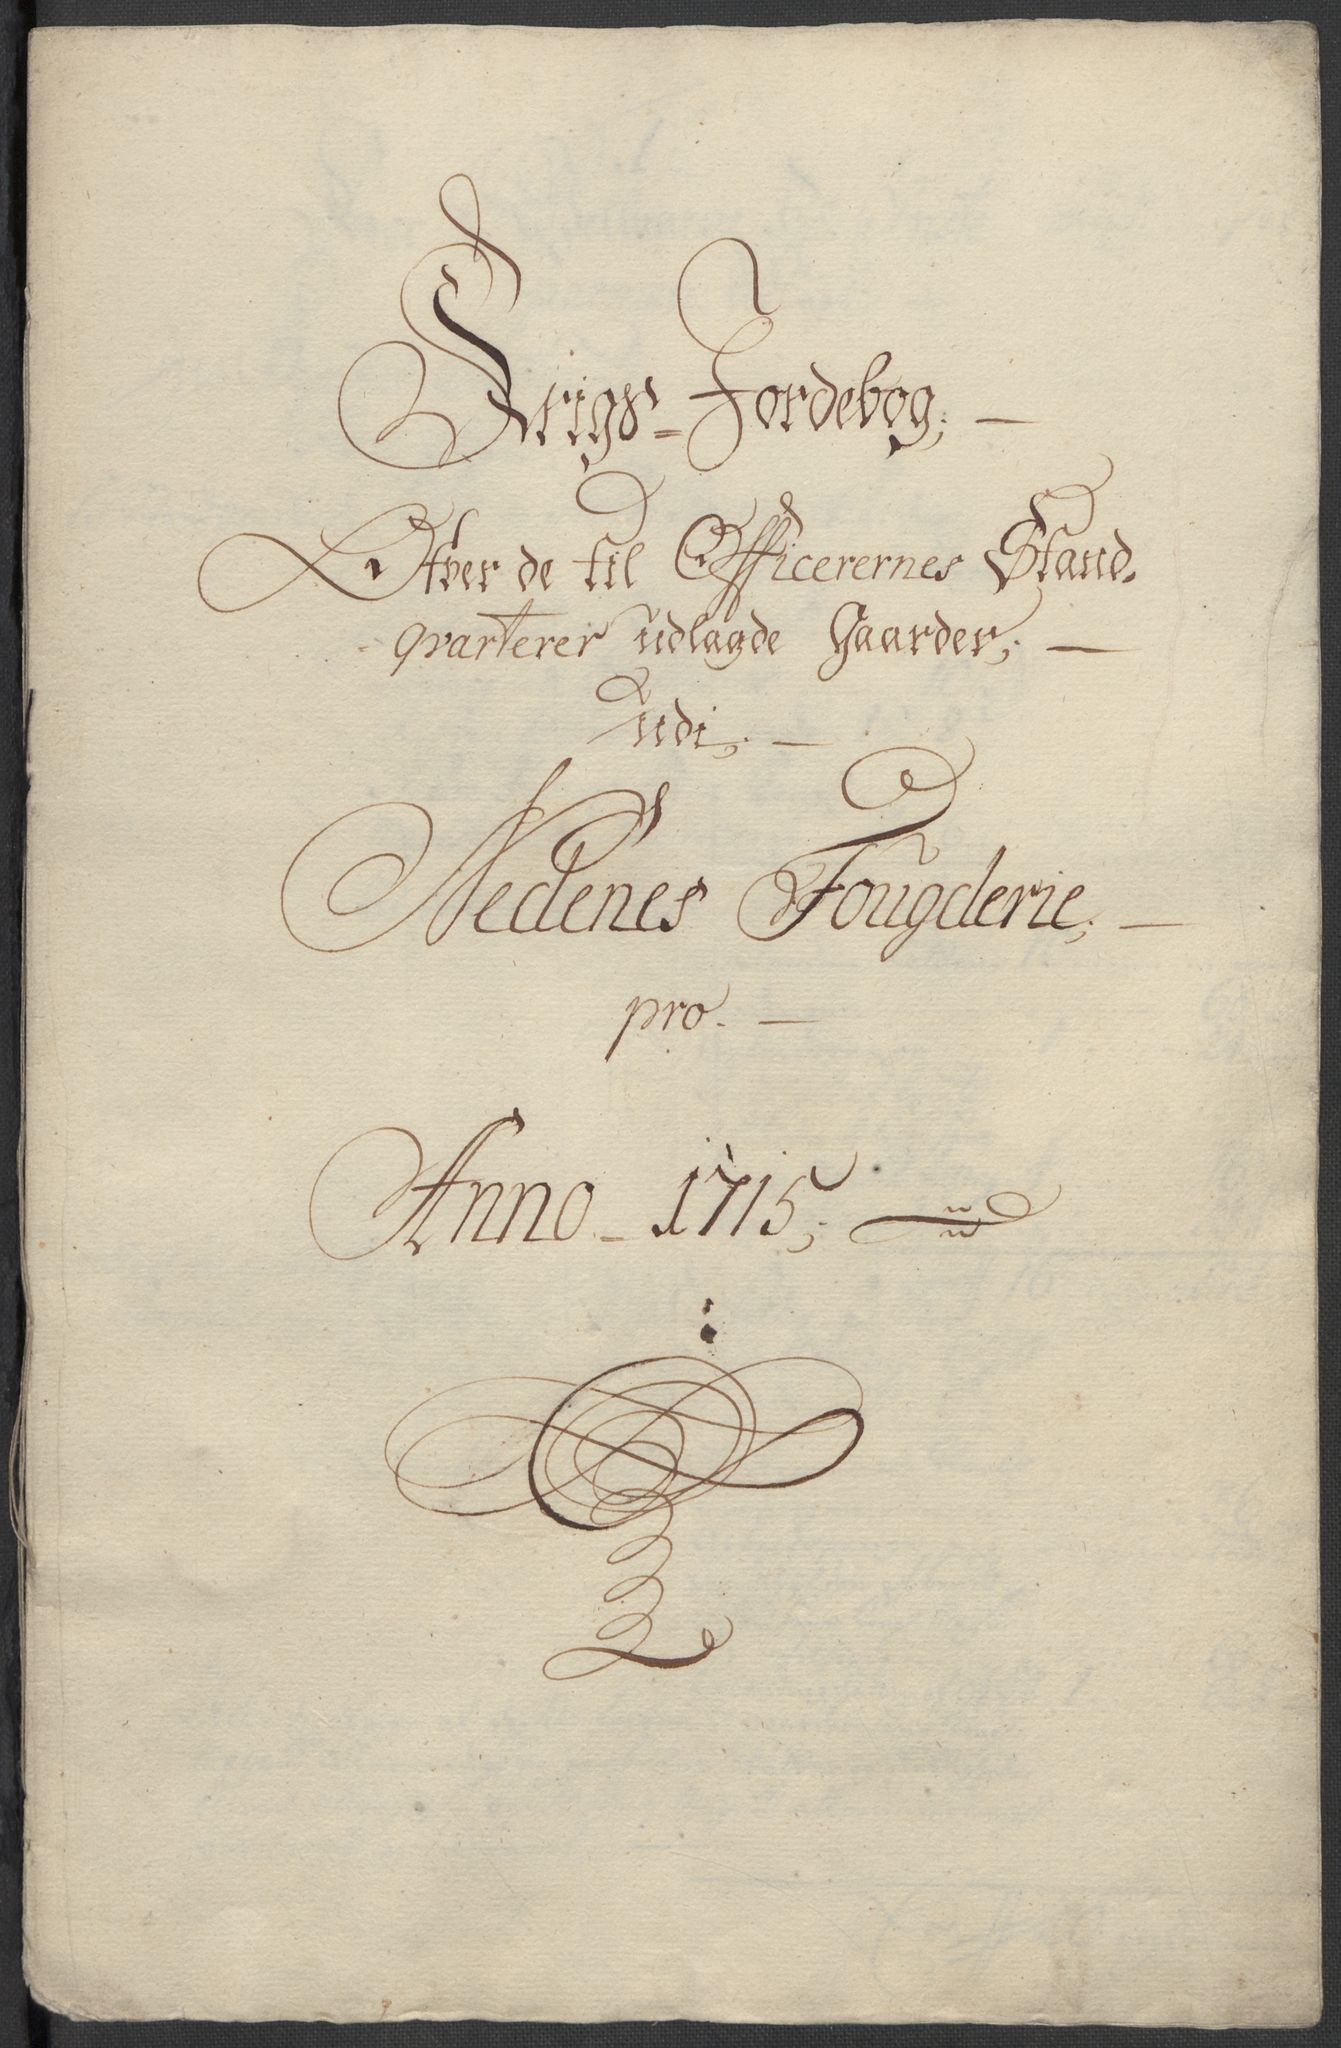 Krigs- Jordebog; —
Ofver de til Officerernes Stand-
qvarterer udlagde Gaarder; —
udi; —
Nedenes Fougderie; —
pro. —
Anno - 1715;